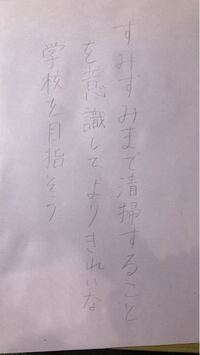 すみずみまで清掃すること
を意識してよりきれいな
学校を目指そう